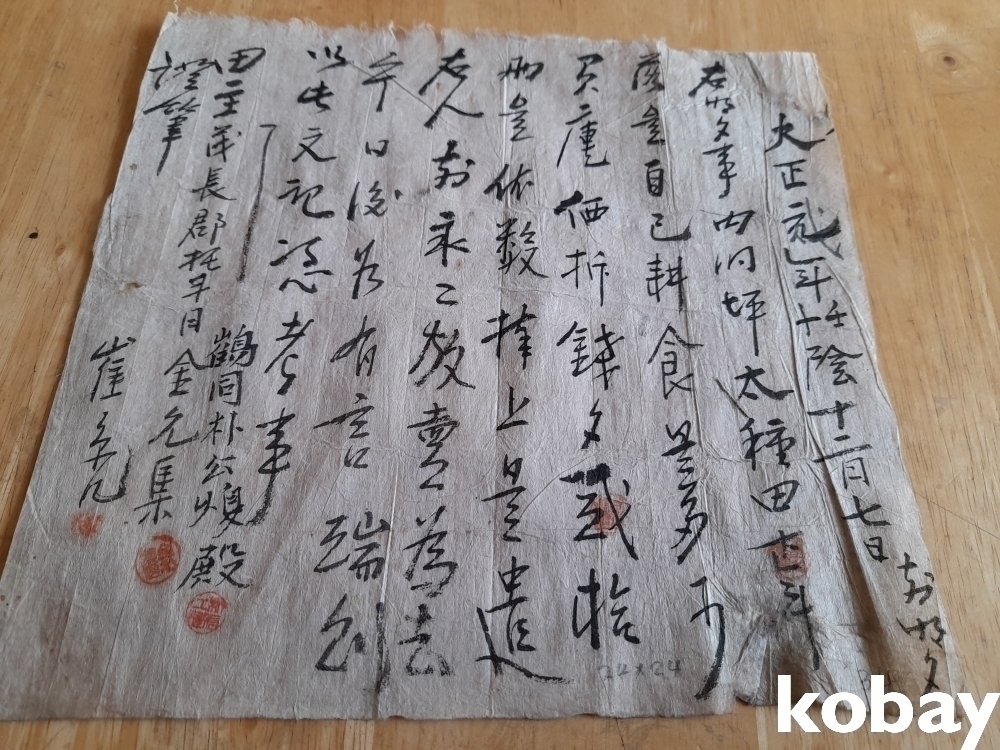 大正元年陰十二月七日 前明文
右明文事 内洞坪太種田斗
落是自己耕食是多可
価折錢文貳拾
兩是依數捧上是遣
右人前永〻放賣為去
乎日後若有言端則
以此文記憑考事
鶴同朴公煥殿
田主茂長郡 金允集
證筆 崔
24×24
kobay